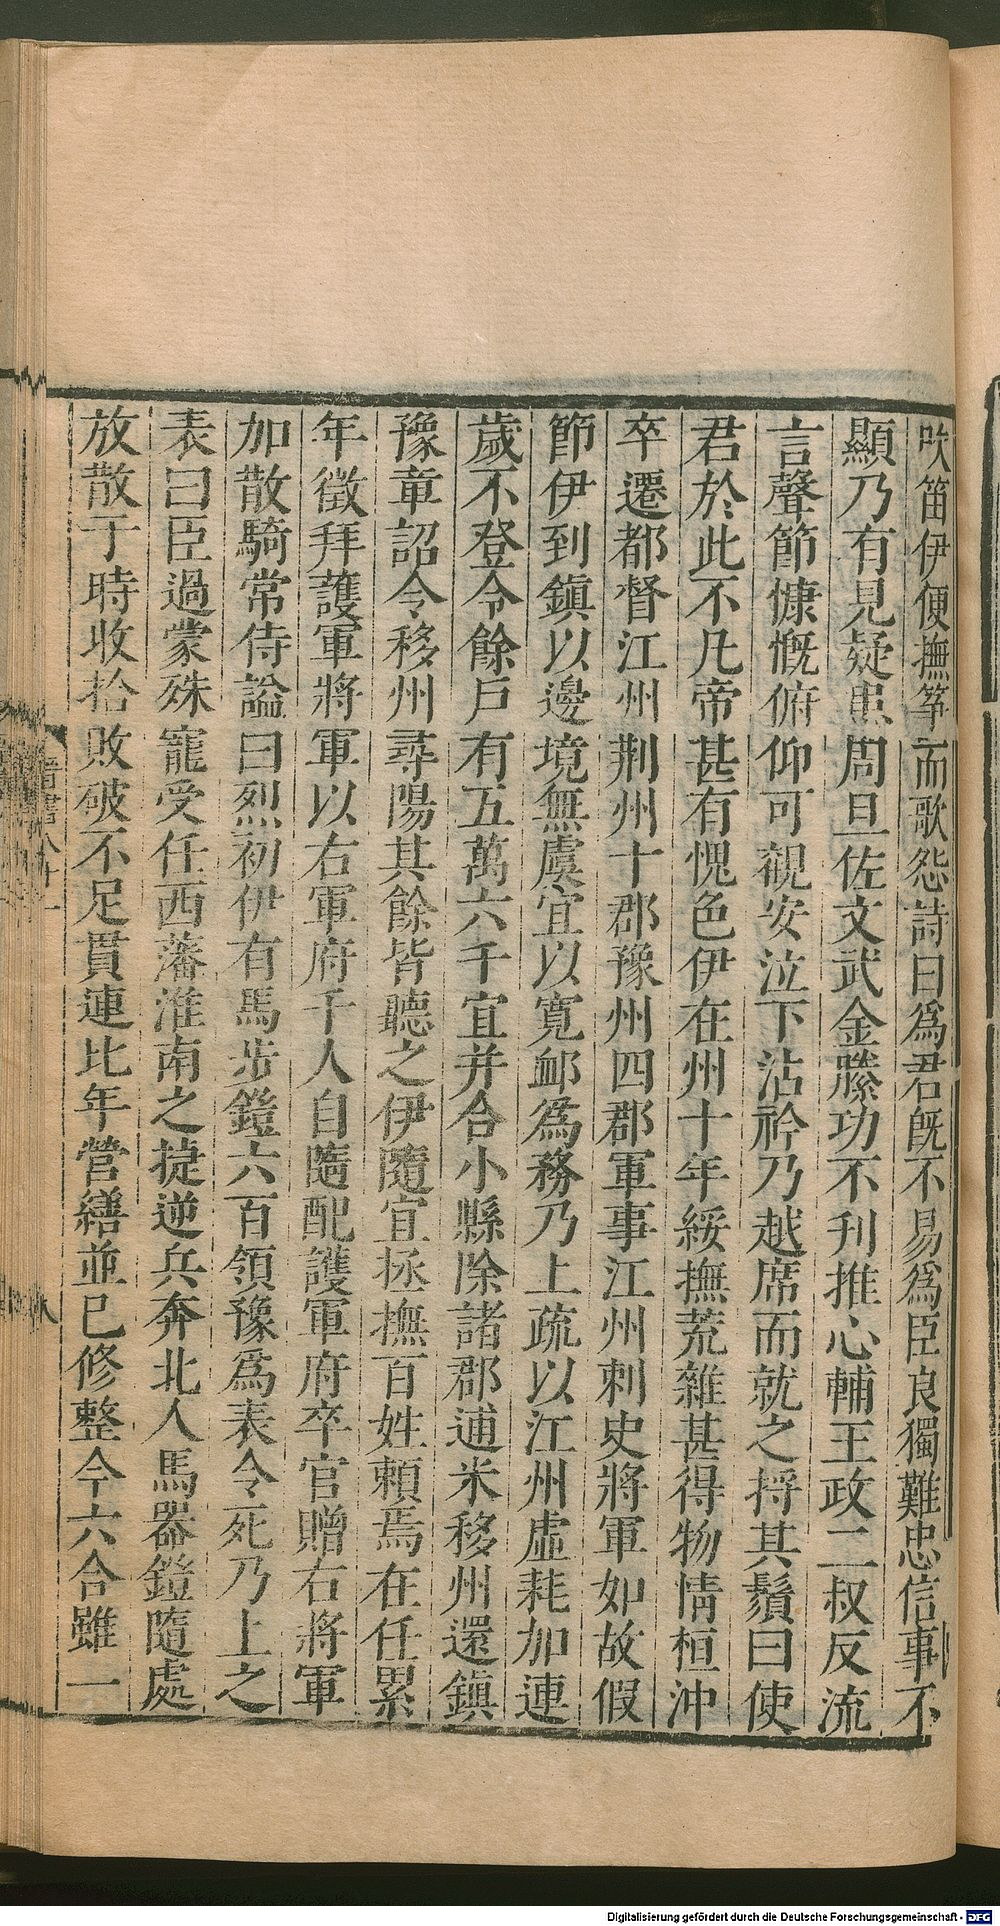 吹笛伊便撫筝而歌怨詩曰爲君旣不易爲臣良獨難忠信事不
顯乃有見疑患周旦佐文武金縢功不刋推心輔王政二叔反流
言聲節慷慨俯仰可觀安泣下沾衿乃越席而就之捋其鬚曰使
君於此不凡帝甚有愧色伊在州十年綏撫荒雜甚得物情桓沖
卒遷都督江州荆州十郡豫州四郡軍事江州刺史將軍如故假
節伊到鎭以邊境無虞宜以寛䘏爲務乃上疏以江州虛耗加連
歲不登今餘戶有五萬六千宜并合小縣除諸郡逋米移州還鎭
豫章詔令移州尋陽其餘皆聽之伊隨宜拯撫百姓賴焉在任累
年徵拜護軍將軍以右軍府千人自隨配護軍府卒官贈右將軍
加散騎常侍謚曰烈初伊有馬步鎧六百領豫爲表令死乃上之
表曰臣過蒙殊寵受任西藩淮南之捷逆兵奔北人馬器鎧隨處
放散于時收拾敗破不足貫連比年營繕並已修整今六合雖一
晉書八十一